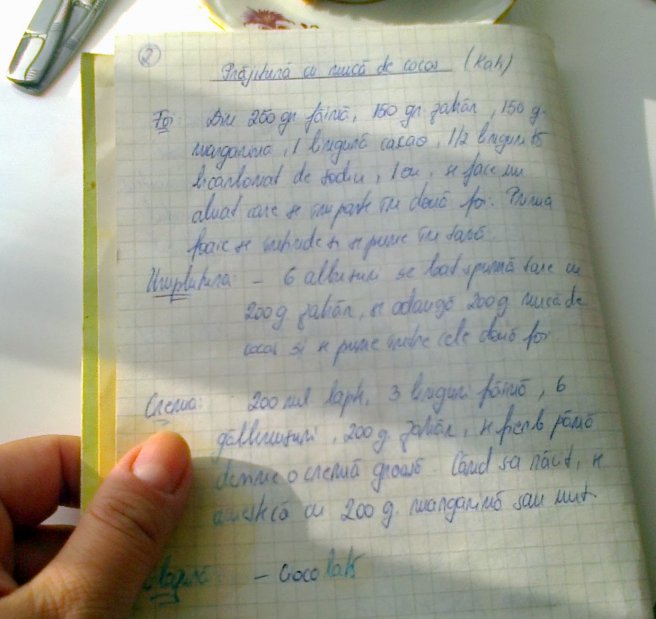 2
Prăjitură cu nucă de cocos (Kah)
Foi: Din 250 gr făină, 150 gr zahăr, 150 g.
margarina, 1 lingură cacao, 1/2 linguriță
bicarbonat de sodiu, 1 ou, se face un
aluat care se împarte în două foi. Prima
foaie se întinde și se pune în tavă.
Umplutura: - 6 albușuri se bat spumă tare cu
200 g zahăr, se adaugă 200 g nucă de
cocos și se pune între cele două foi
Crema: 200 ml lapte, 3 linguri făină, 6
gălbenușuri, 200 g. zahăr, se fierb până
devine o cremă groasă. Când sa răcit, se
amestecă cu 200 g. margarină sau unt.
- Ciocolată